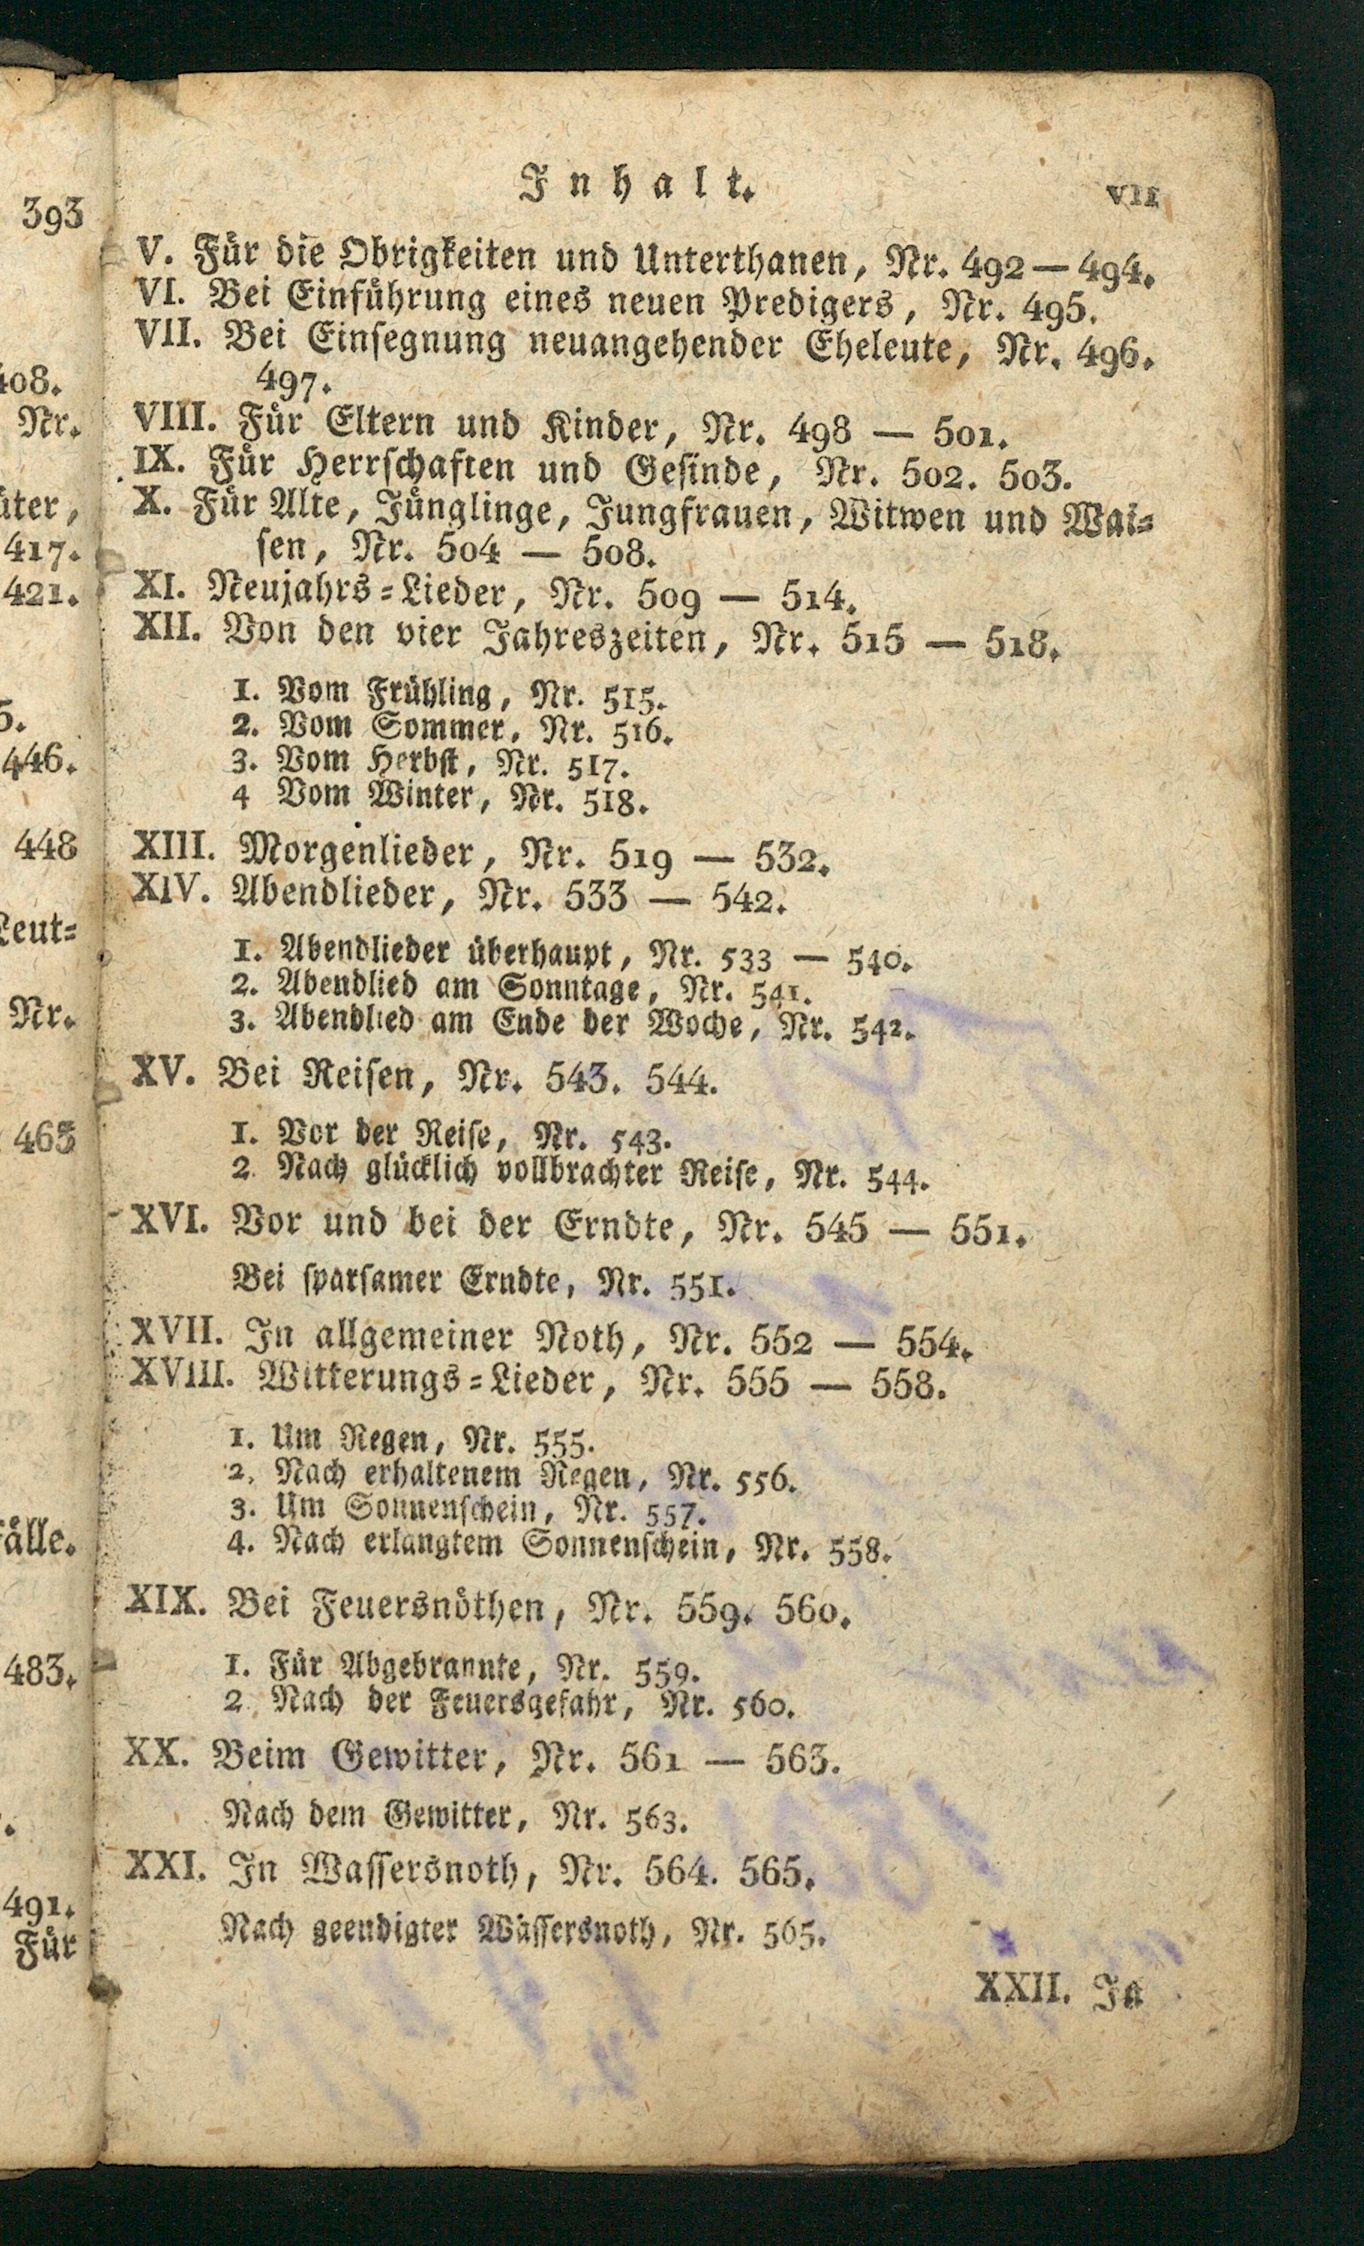 Inhalt. VII
V. Für die Obrigkeiten und Unterthanen, Nr. 492 — 494.
VI. Bei Einführung eines neuen Predigers, Nr. 495.
VII. Bei Einsegnung neuangehender Eheleute, Nr. 496.
497.
VIII. Für Eltern und Kinder, Nr. 498 — 501.
IX. Für Herrschaften und Gesinde, Nr. 502. 503.
X. Für Alte, Jünglinge, Jungfrauen, Witwen und Wai=
sen, Nr. 504 — 508.
XI. Neujahrs=Lieder, Nr. 509 — 514.
XII. Von den vier Jahreszeiten, Nr. 515 — 518.
1. Vom Frühling, Nr. 515.
2. Vom Sommer, Nr. 516.
3. Vom Herbst, Nr. 517.
4 Vom Winter, Nr. 518.
XIII. Morgenlieder, Nr. 519 — 532.
XIV. Abendlieder, Nr. 533 — 542.
1. Abendlieder überhaupt, Nr. 533 — 540.
2. Abendlied am Sonntage, Nr. 541.
3. Abendlied am Ende der Woche, Nr. 542.
XV. Bei Reisen, Nr. 543. 544.
1. Vor der Reise, Nr. 543.
2 Nach glücklich vollbrachter Reise, Nr. 544.
XVI. Vor und bei der Erndte, Nr. 545 — 551.
Bei sparsamer Erndte, Nr. 551.
XVII. In allgemeiner Noth, Nr. 552 — 554.
XVIII. Witterungs=Lieder, Nr. 555 — 558.
1. Um Regen, Nr. 555.
2. Nach erhaltenem Regen, Nr. 556.
3. Um Sonnenschein, Nr. 557.
4. Nach erlangtem Sonnenschein, Nr. 558.
XIX. Bei Feuersnöthen, Nr. 559. 560.
1. Für Abgebrannte, Nr. 559.
2 Nach der Feuersgefahr, Nr. 560.
XX. Beim Gewitter, Nr. 561 — 563.
Nach dem Gewitter, Nr. 563.
XXI. In Wassersnoth, Nr. 564. 565.
Nach geendigter Wassersnoth, Nr. 565.
XXII. In
393
408.
Nr.
417.
421.
5.
446.
448
Leut=
Nr.
463
483.
491.
Für